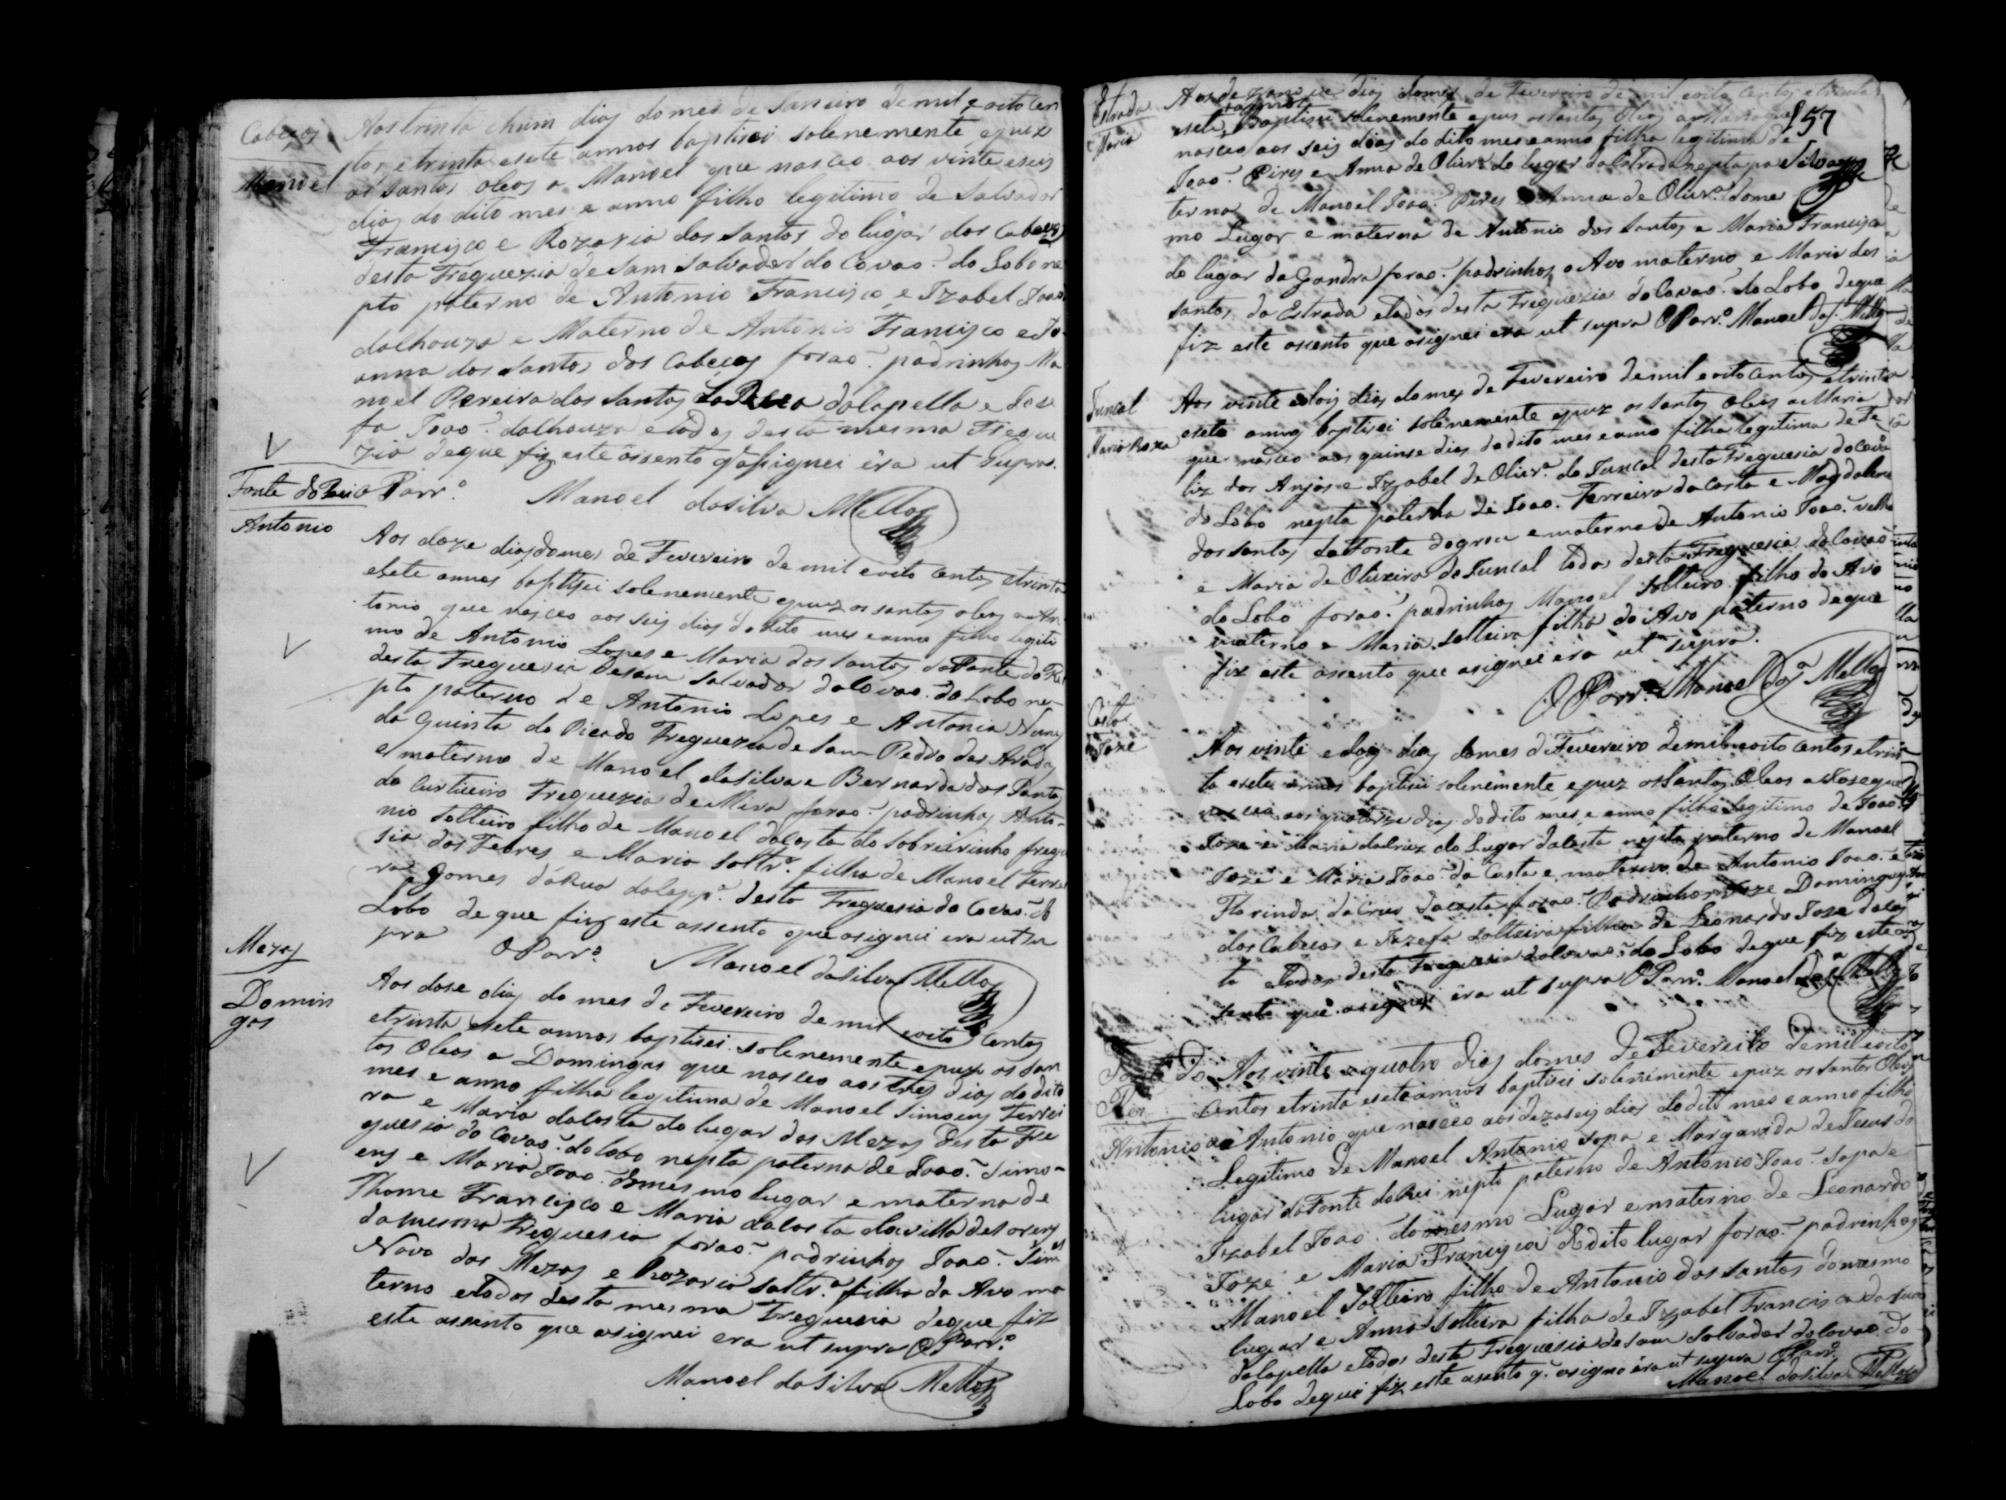 Cabeços
Manoel
Aos trinta ehum dias domes de Janeiro demil e oito cen
tos, e trinta esete annos baptisei solenemente epuz
os santos oleos a Manoel que nasceo aos vinte eseis
dias do dito mes e anno filho legitimo de Salvador
Francisco e Rozaria dos Santos do lugar dos Cabeços
desta Freguezia de Sam Salvador do Covao do Lobo ne
pto paterno de Antonio Francisco, e Izabel Joao
dalhouza e Materno de Antonio Francisco e Jo
anna dos Santos dos Cabeços forao padrinhos Ma
noel Pereira dos Santos dalapella e Joze
fa Joao dalhouza etodos desta mesma Fregue
zia deque fiz este assento q asignei éra ut supra.
O Parr.º Manoel dasilva Mello
Fonte do Rei
Antonio
Aos doze dias domes de Fevereiro de mil e oito centos etrinta
esete annos baptisei solenemente epuz os santos oleos a An
tonio que nasceo aos seis dias do dito mes eanno filho legiti
mo de Antonio Lopes e Maria dos Santos da Fonte do Rei
desta Freguezia desam Salvador do Covao do Lobo ne-
pto paterno de Antonio Lopes e Antonia Nunes
da Quinta do Picado Freguezia de Sam Pedro das Aradas
e materno de Manoel dasilva e Bernarda dos Santos
do Curtieiro Freguezia de Mira forao padrinhos Anto-
nio solteiro filho de Manoel dacosta do Sobreirinho fregue
sia dos Febres e Maria soltr.ª filha de Manoel Ferrei
ra Gomes dâ Rua dalapp.ª desta Freguesia do Covao do
Lobo de que fiz este assento que asignei era ut su
pra O Parr.º Manoel dasilva Mello
Mezas
Domin
gas
Aos dose dias do mes de Fevereiro de mil eoito centos
etrinta esete annos baptisei solenemente epuz os san
tos Oleos a Domingas que nasceo aos tres dias do dito
mes e anno filha legitima de Manoel Simoens Ferrei
ra e Maria dacosta do lugar das Mezas desta Fre
guesia do Covao do lobo nepta paterna de Joao Simo-
ens e Maria Joao domesmo lugar e materna de
Thome Francisco e Maria dacosta davilla de Sorens
damesma Freguesia forao padrinhos Joao Simoes
Novo das Mezas e Rozaria soltr.ª filha do Avo ma
terno etodos desta mesma Freguesia deque fiz
este assento que asignei era ut supra O Parr.º
Manoel dasilva Mello
157
Estrada
Maria
Aos dezanove dias domes de Fevereiro de mil eoito centos etrinta
esete annos baptisei solenemente epus os santos Oleos a Maria que
nasceo aos seis dias do dito mes eanno filha legitima de
Joao Pires e Anna de Olivr.ª do lugar da Estrada nepta pa
terna de Manoel Joao Pires e Anna de Olivr.ª dome
mo Lugar e materna de Antonio dos Santos e Maria Francisca
do lugar da Gandra forao padrinhos o Avo materno e Maria dos
santos da Estrada etodos desta Freguezia do Covao do Lobo deque
fiz este assento que asignei era ut supra O Parr.º Manoel da S.ª Mello
Juncal
Maria Roza
Aos vinte edois dias domes de Fevereiro demil eoito centos etrinta
esete annos baptisei solenemente epuz os santos oleos a Maria
que nasceo aos quinse dias do dito mes eanno filha legitima de Fe
liz dos Anjos e Izabel de Olivr.ª do Juncal desta Freguesia do Covao
do Lobo nepta paterna de Joao Ferreira da Costa e Magdalena
dos santos da Fonte dagrea e materna de Antonio Joao velho
e Maria de Oliveira do Juncal todos desta Freguezia do Covao
do Lobo forao padrinhos Manoel solteiro filho do Avo
materno e Maria solteira filha do Avo paterno deque
fiz este assento que asignei era ut supra.
O Parr.º Manoel da S.ª Mello
Costa
Joze
Aos vinte edois dias domes de Fevereiro demil eoito centos etrin
ta esete annos baptisei solenemente epuz os santos Oleos a Jose que
nasceo aos quatorze dias do dito mes e anno filho legitimo de Joao
Joze e Maria dacruz do Lugar dacosta nepto paterno de Manoel
Joze e Maria Joao da Costa e materno de Antonio Joao e
Florinda dacruz dacosta forao Padrinhos Joze Domingues
dos Cabecos e Jozefa solteira filha de Leonardo Joze dacos
ta etodos desta Freguesia do Covao do Lobo deque fiz este as
sento que asignei éra ut supra O Parr.º Manoel da S.ª Mello
Fonte do
Rei
Antonio
Aos vinte equatro dias domes de Fevereiro demil eoito
centos etrinta esete annos baptisei solenemente epuz os santos Oleos
a Antonio que nasceo aos dezaseis dias do dito mes e anno filho
Legitimo de Manoel Antonio Sopa e Margarida de Jesus do
lugar da Fonte do Rei nepto paterno de Antonio Joao Sopa e
Izabel Joao domesmo Lugar ematerno de Leonardo
Joze e Maria Francisca do dito lugar forao padrinhos
Manoel Solteiro filho de Antonio dos santos domesmo
lugar e Anna Solteira filha de Izabel Francisca da
dalapella etodos desta Freguesia desam Salvador do Covao do
Lobo deque fiz este asento q asigno éra ut supra O Parr.º
Manoel dasilva Mello
ADAVR